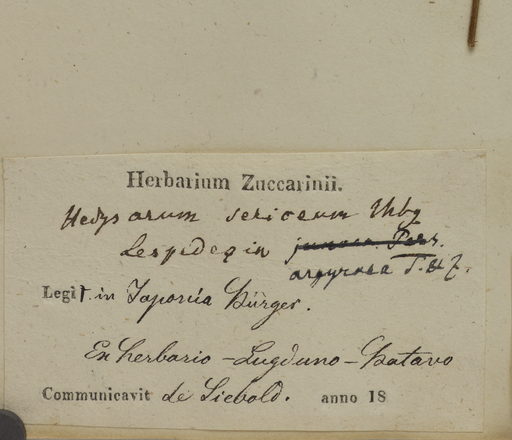 Herbarium Zuccarinii.
Hedysarum sericeum Thbg
Lespedeza juncea Pers.
argyraea S. & Z.
Legit in Japonia Bürger.
Ex herbario - Lugduno - Batavo
Communicavit de Siebold. anno 18